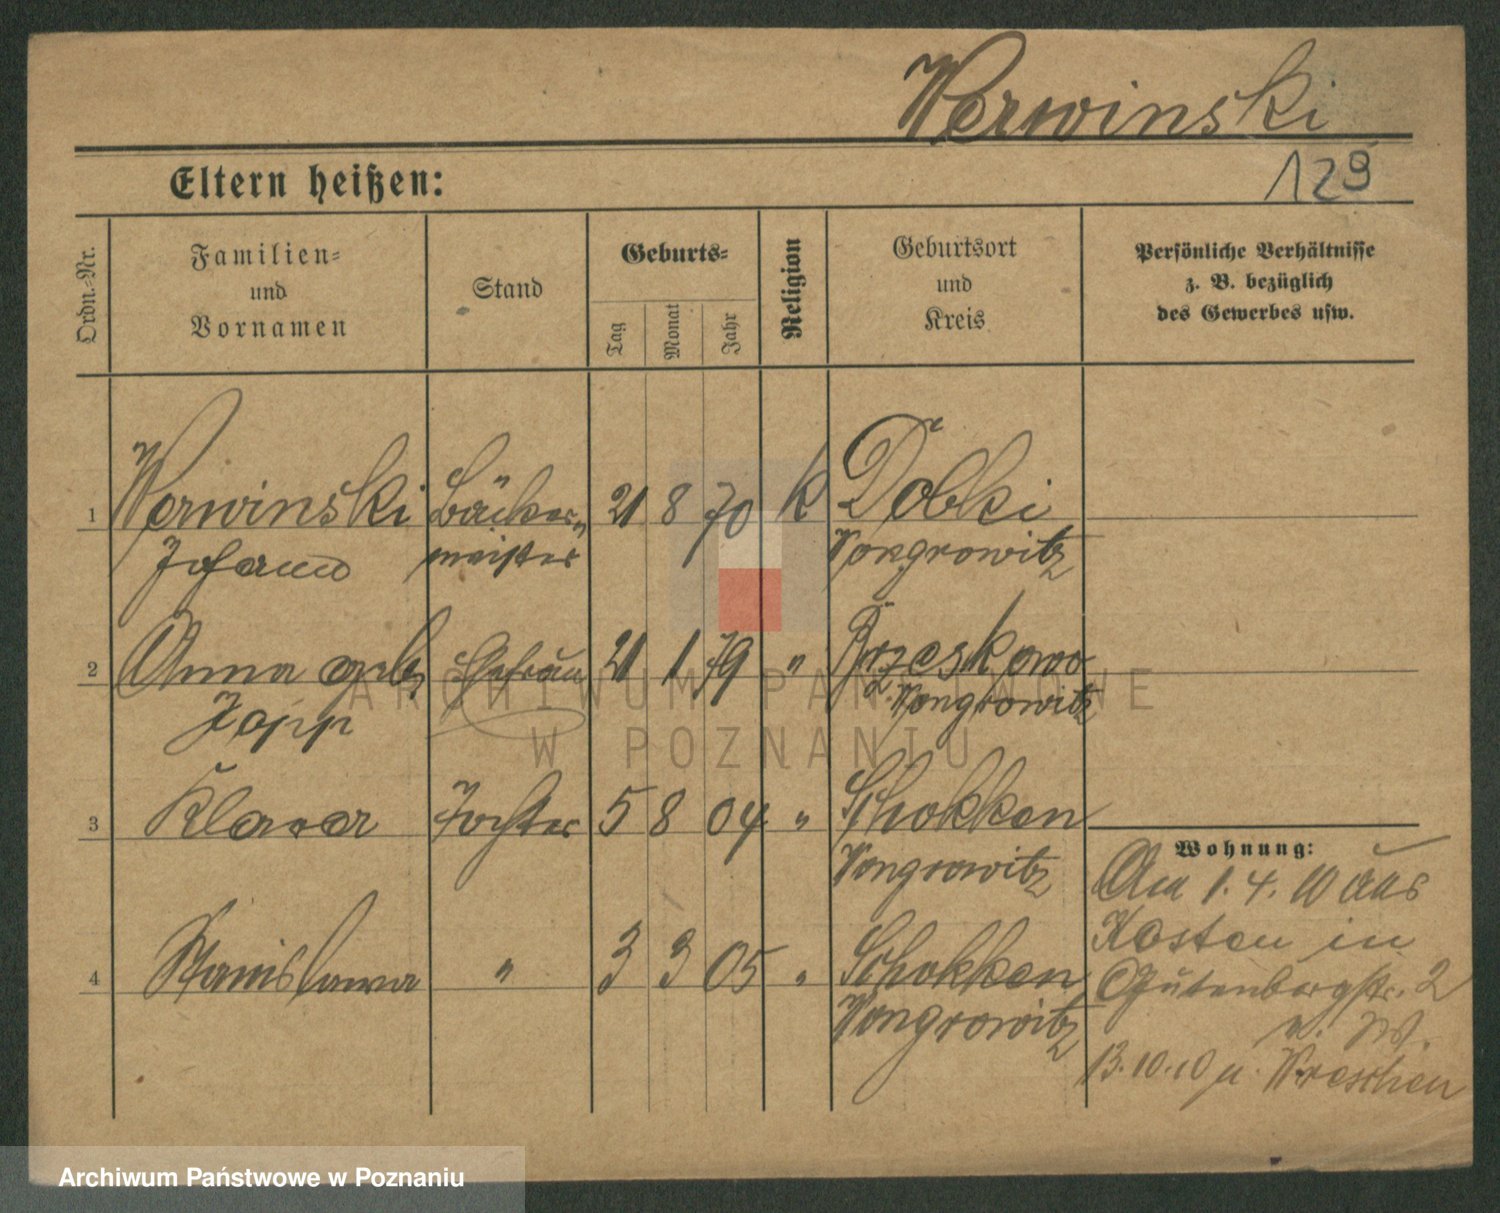 Werwinski
129
Eltern heißen:
Ordn.-Nr.
Familien-
und
Vornamen
Stand
Geburts-
Tag
Monat
Jahr
Religion
Geburtsort
und
Kreis
Persönliche Verhältnisse
z. B. bezüglich
des Gewerbes usw.
1 Werwinski Bäcker- 21 8 70 k Dobki
Johann meister Wongrowitz
2 Anna geb. Ehefrau 21 1 79 " Brzeskowo
Zopp Wongrowitz
3 Klara Tochter 5 8 04 " Schokken
Wongrowitz
4 Stanislawa " 3 3 05 " Schokken
Wongrowitz
Wohnung:
Am 1. 4. 10 aus
Kosten in
Gutenbergstr. 2
13.10.10 n. Wreschen
ARCHIWUM PAŃSTWOWE
W POZNANIU
Archiwum Państwowe w Poznaniu